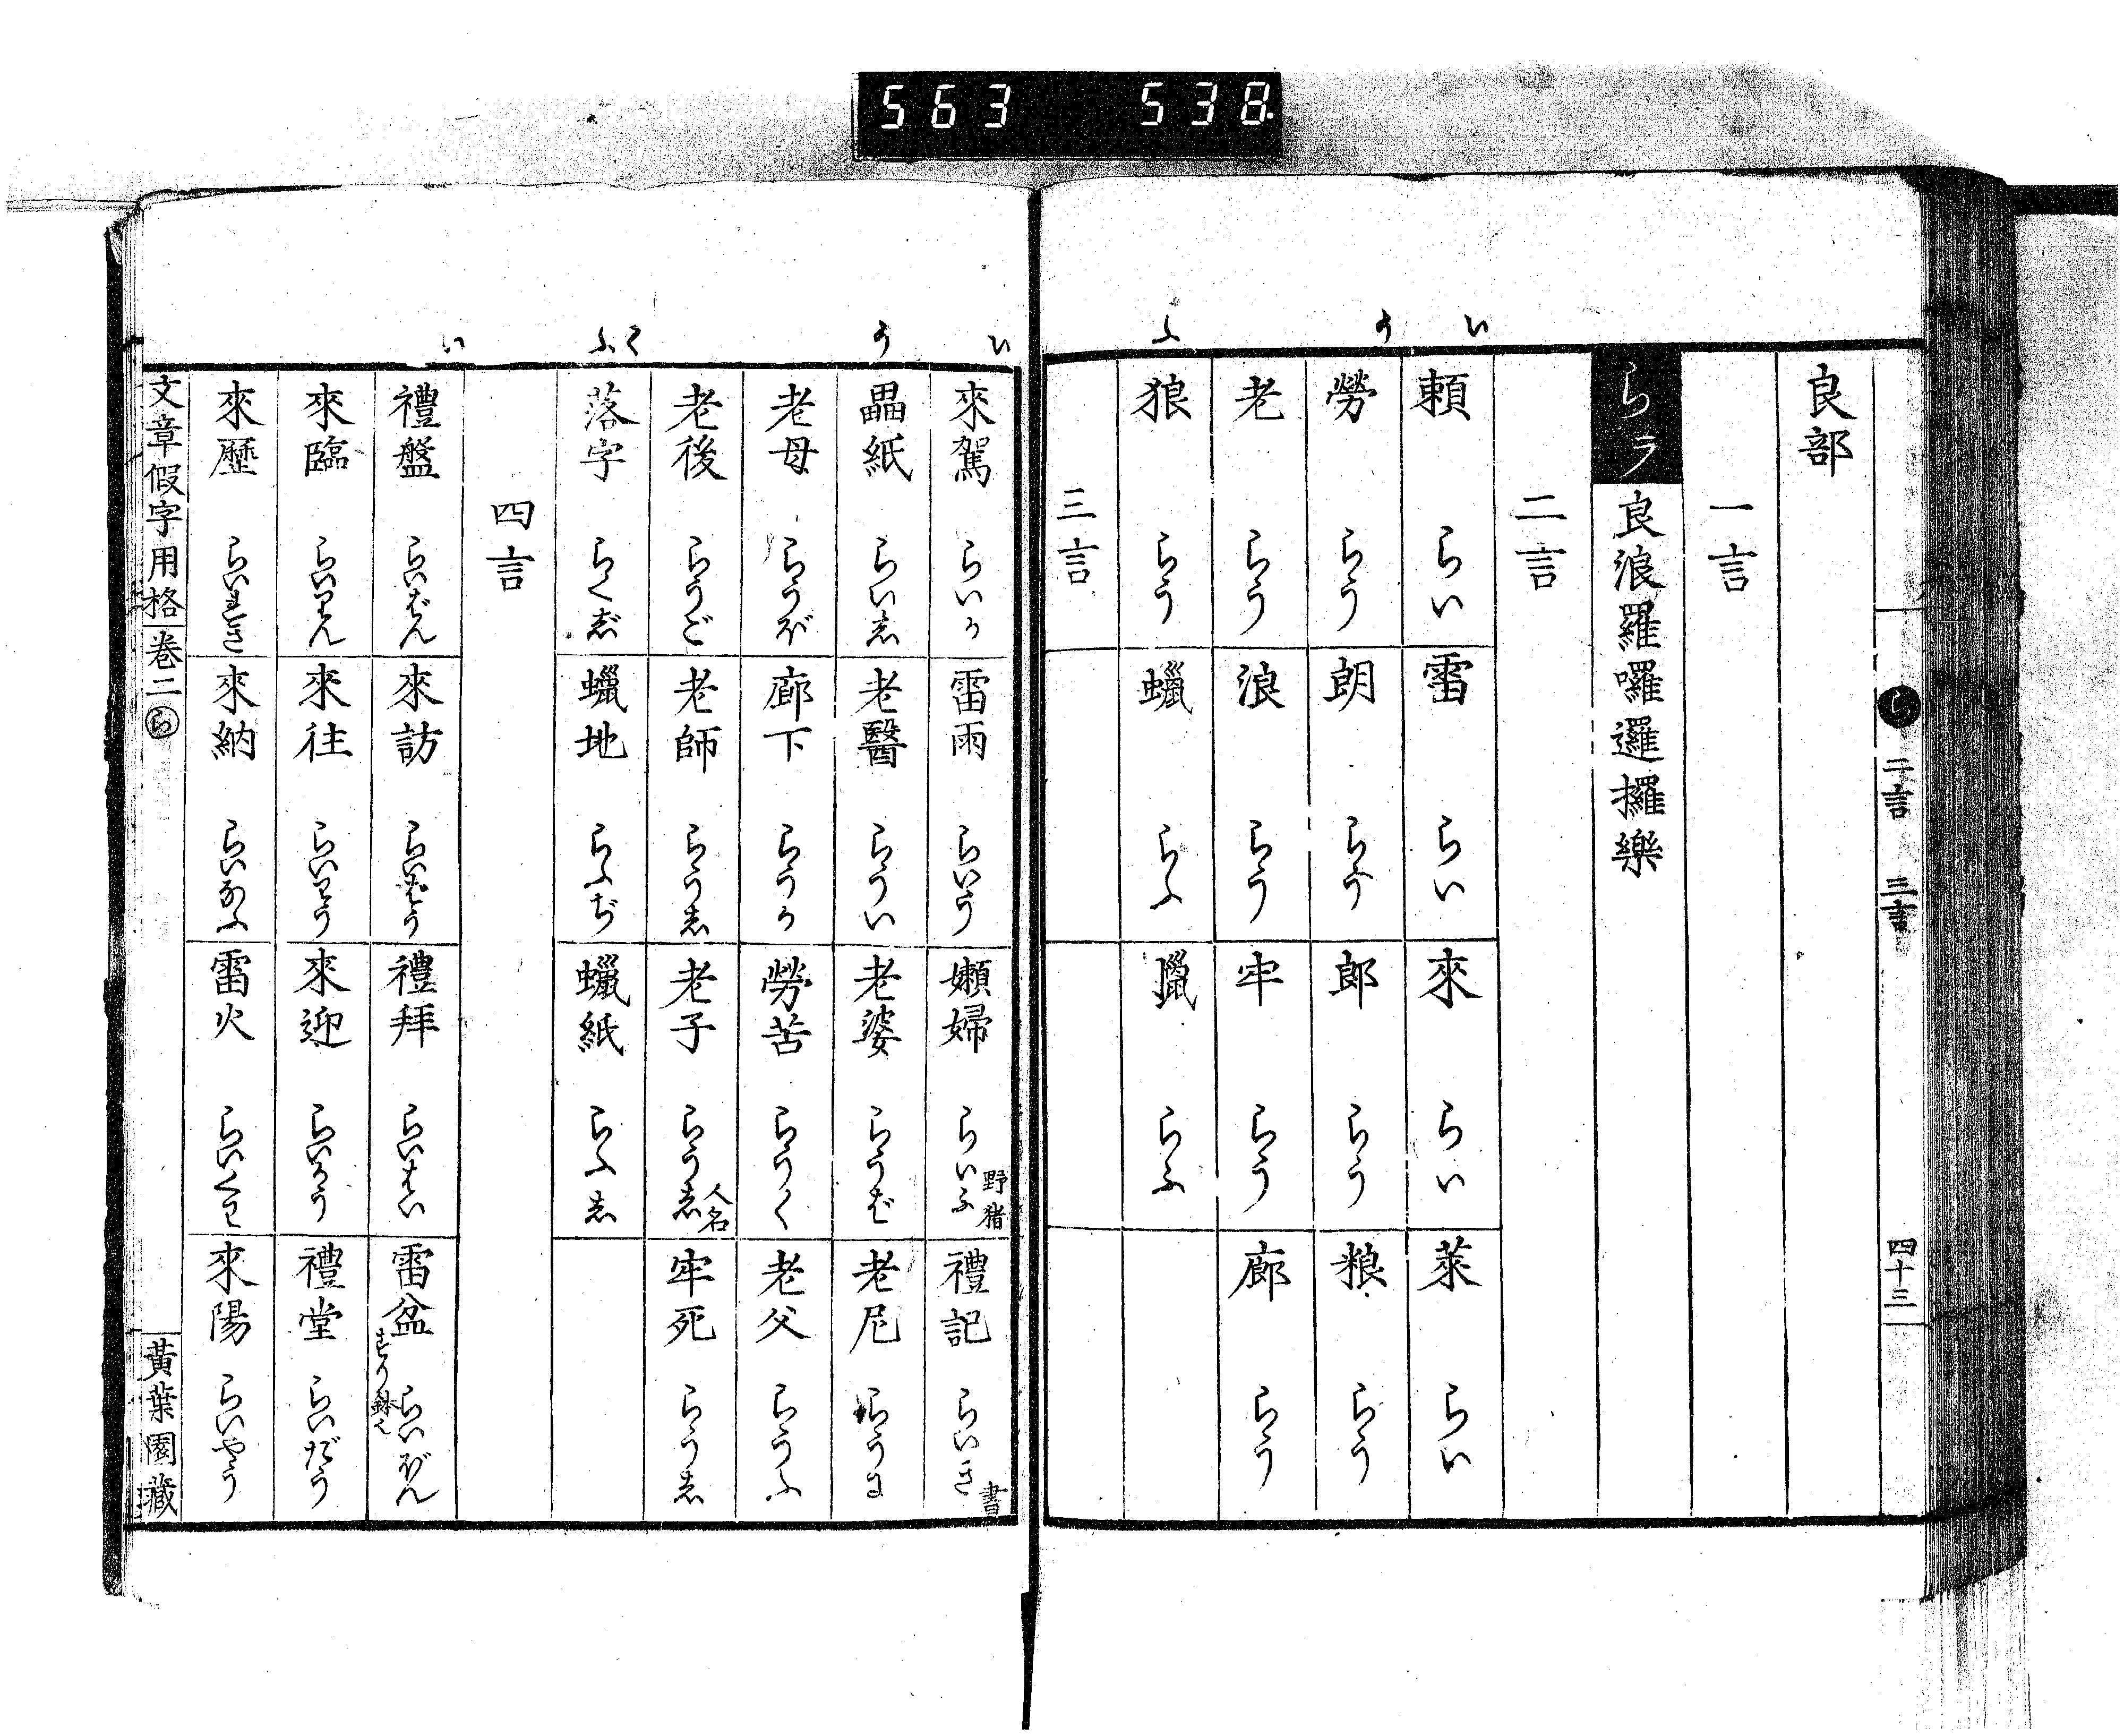 563 538
ら 二言 三言 四十三
良部
一言
らラ 良浪羅囉邏攞樂
二言
い
頼 らい 雷 らい 來 らい 萊 らい
う
勞 らう 朗 らう 郎 らう 粮 らう
老 らう 浪 らう 牢 らう 廊 らう
ふ
狼 らう 蠟 らふ 臘 らふ
三言
い
來駕 らいか 雷雨 らいう 嬾婦 らいふ 野猪 禮記 らいき 書
う
畾紙 らいし 老醫 らうい 老婆 らうば 老尼 らうに
老母 らうぼ 廊下 らうか 勞苦 らうく 老父 らうふ
老後 らうご 老師 らうし 老子 らうし 人名 牢死 らうし
く ふ
落字 らくじ 蠟地 らふぢ 蠟紙 らふし
四言
い
禮盤 らいばん 來訪 らいはう 禮拜 らいはい 雷盆 らいぼん すり鉢也
來臨 らいりん 來往 らいわう 來迎 らいかう 禮堂 らいだう
來歴 らいれき 來納 らいなふ 雷火 らいくわ 來陽 らいやう
文章假字用格 卷二 ら 黃葉園藏